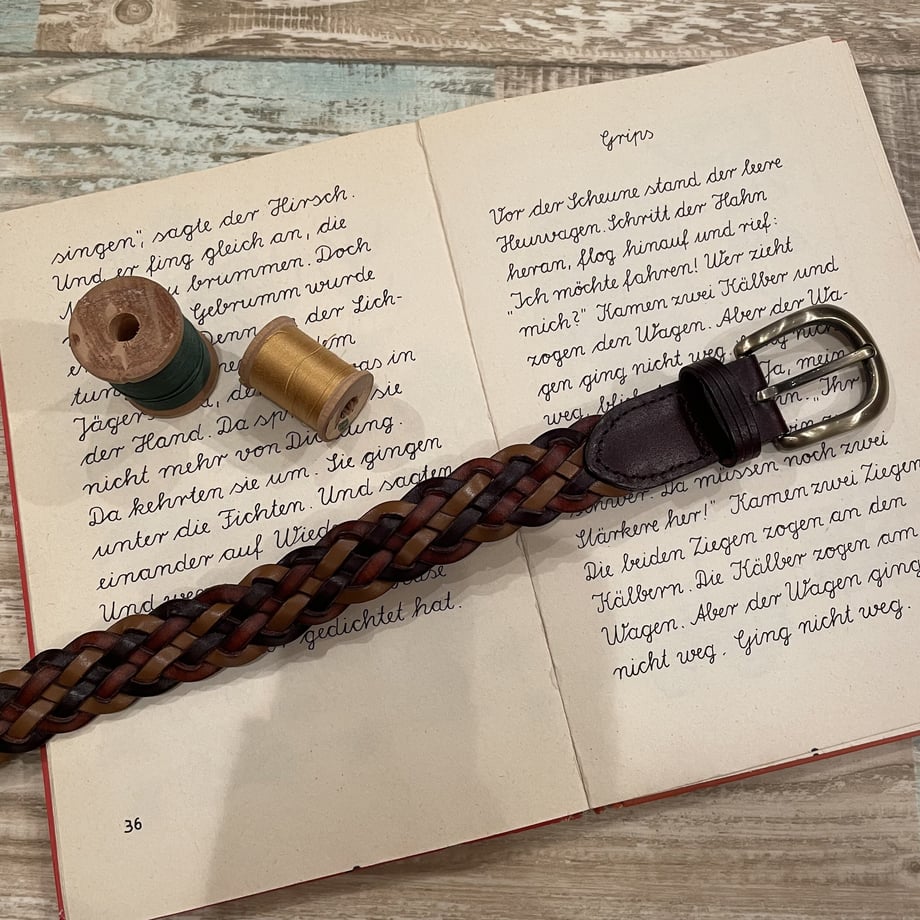 singen", sagte der Hirsch.
Und er fing gleich an, die
zu brummen. Doch
Gebrumm wurde
Denn der Lich-
dem
tun was in
Jäger sie
der Hand. Da
nicht mehr von
Da kehrten sie um. Sie gingen
unter die Fichten. Und sagten
einander auf
Und
gedichtet hat.
36
Grips
Vor der Scheune stand der leere
Heuwagen. Schritt der Hahn
heran, flog hinauf und rief:
"Ich möchte fahren! Wer zieht
mich?" Kamen zwei Kälber und
zogen den Wagen. Aber der Wa-
gen ging nicht weg. ging nicht
weg, Ja, mein
"Ihr
Da müssen noch zwei
Stärkere her!" Kamen zwei Ziegen.
Die beiden Ziegen zogen an den
Kälbern. Die Kälber zogen am
Wagen. Aber der Wagen ging
nicht weg. Ging nicht weg.